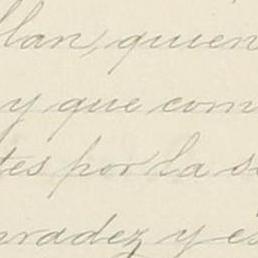 llan, quien
y que com
tes por la s
nradez y es